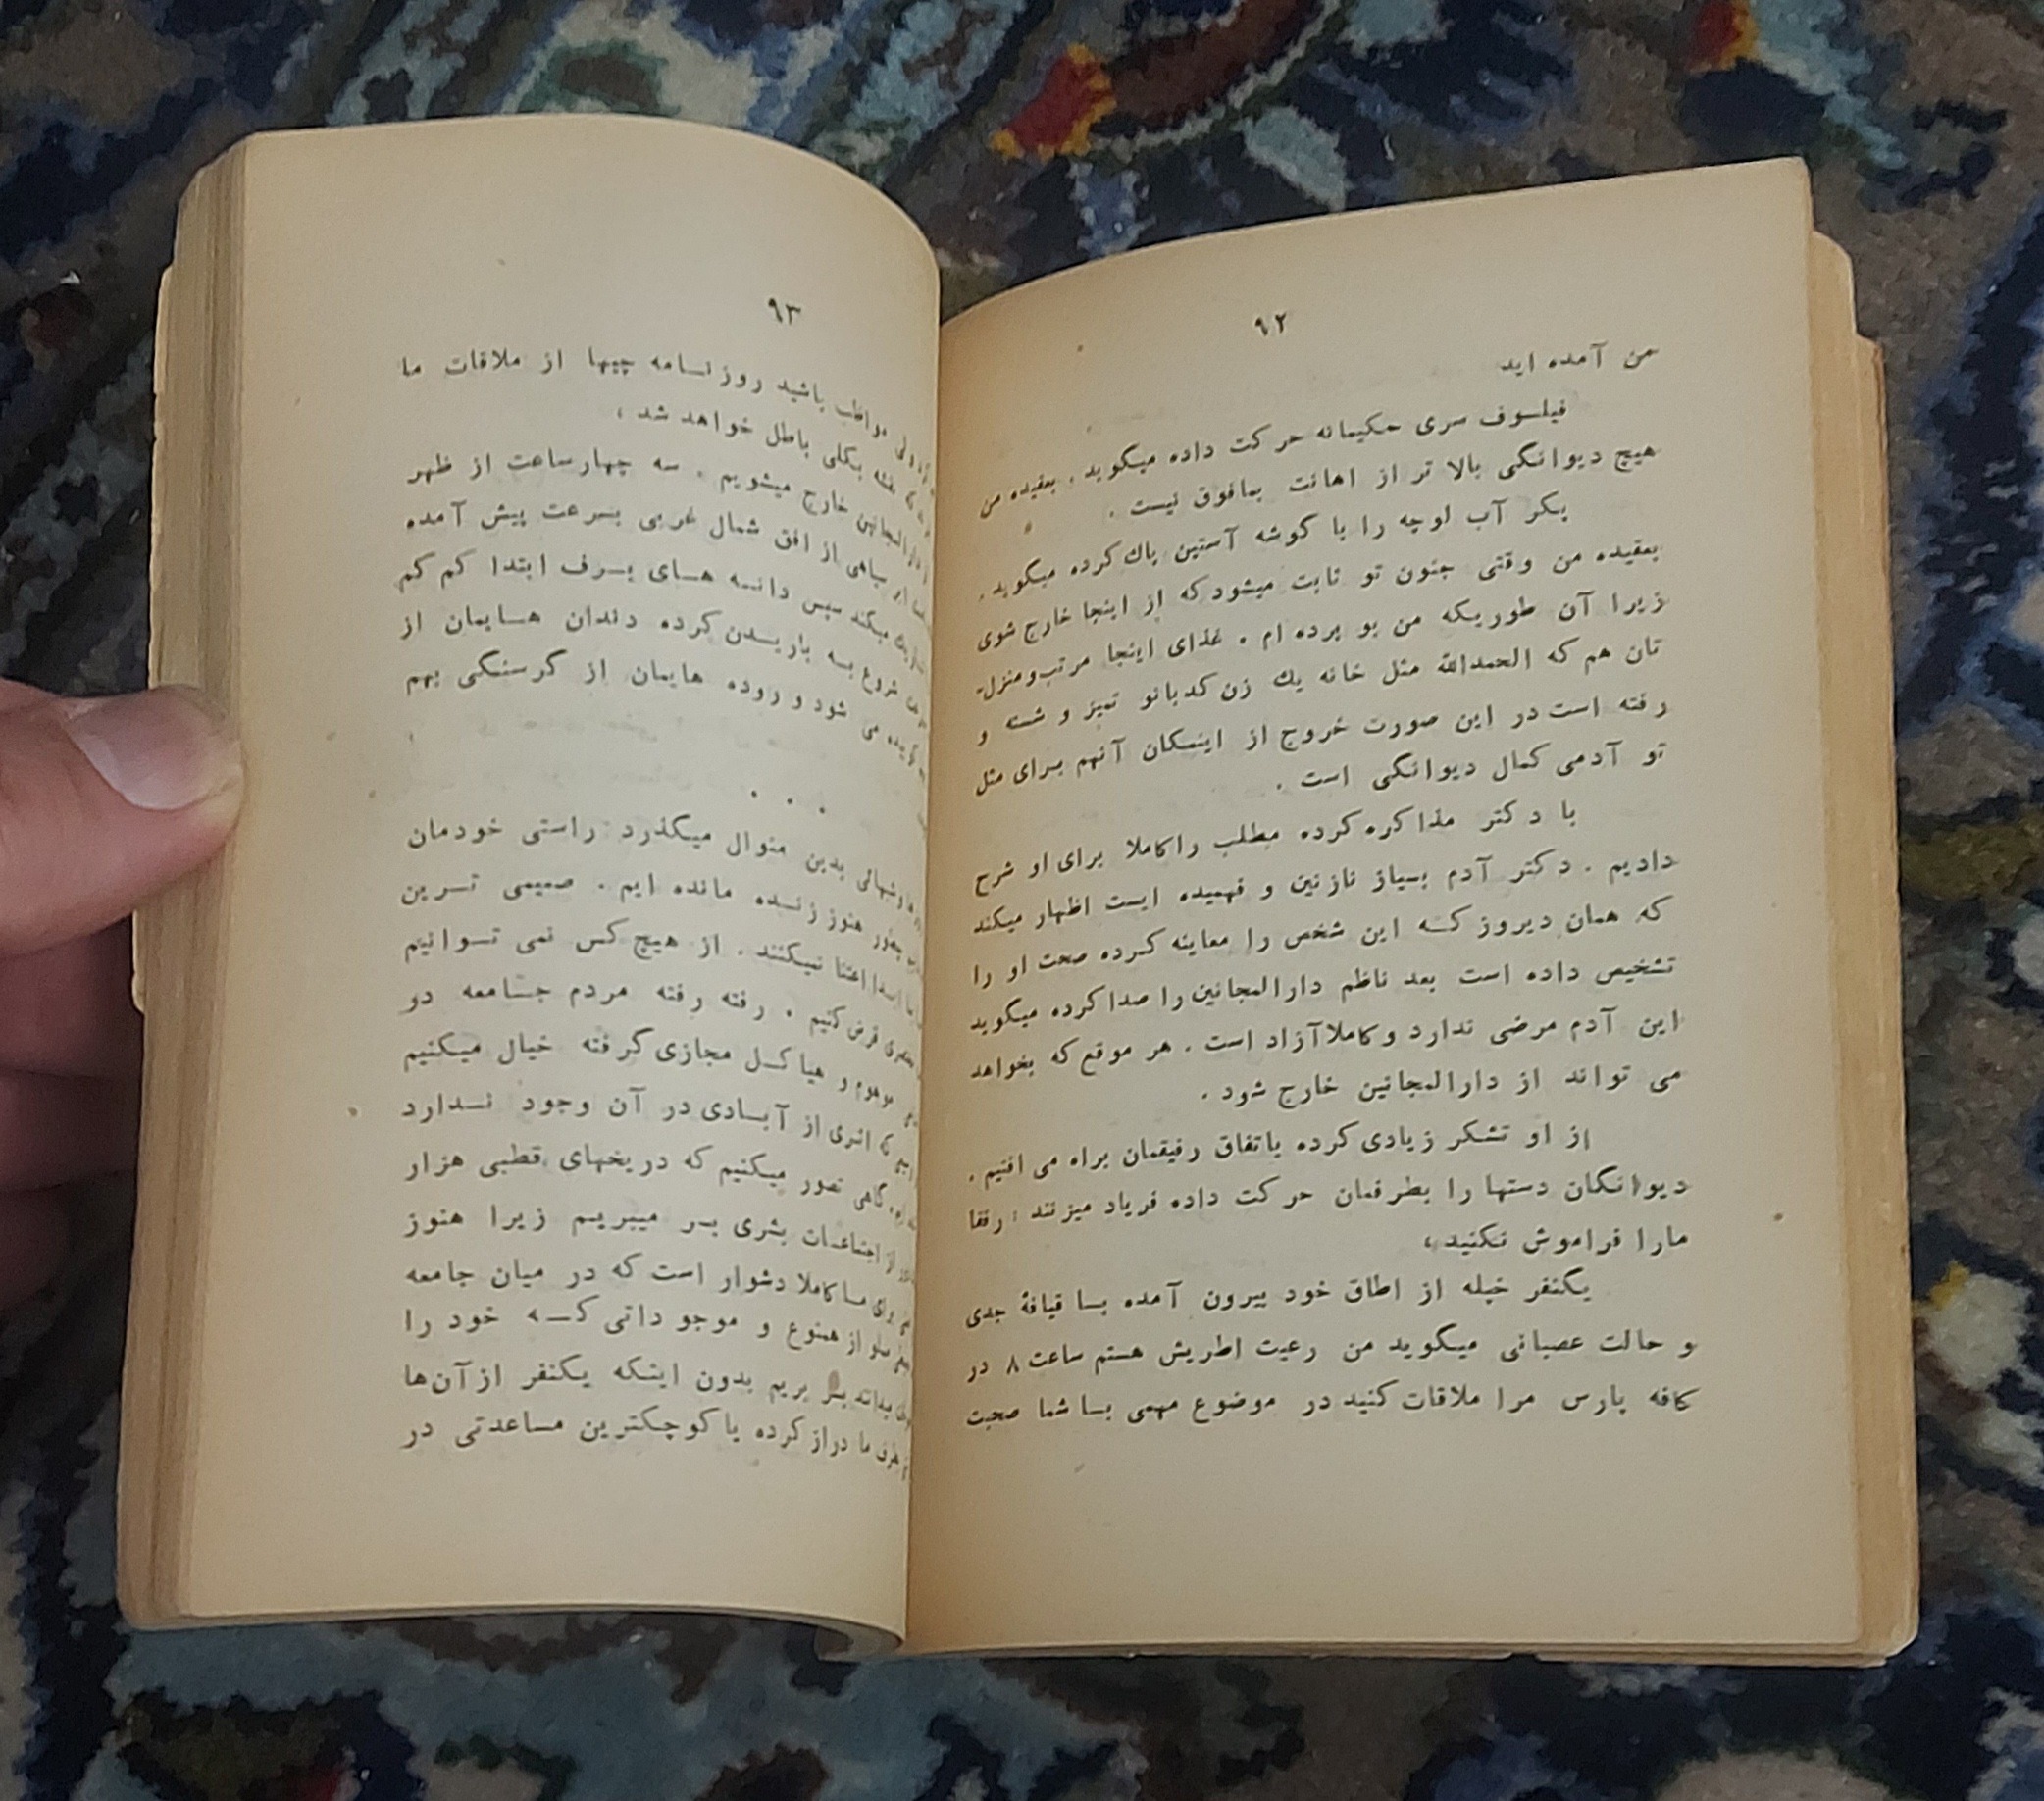 ۹۲
من آمده اید
فیلسوف سری حکیمانه حرکت داده میگوید . بعقیده من
هیچ دیوانگی بالا تر از اهانت بمافوق نیست .
یکر آب لوچه را با گوشه آستین پاك کرده میگوید .
بعقیده من وقتی جنون تو ثابت میشود که از اینجا خارج شوی
زیرا آن طوریکه من بو برده ام . غذای اینجا مرتب و منزل-
تان هم که الحمدالله مثل خانه یك زن کدبانو تمیز و شسته و
رفته است در این صورت خروج از اینمکان آنهم برای مثل
تو آدمی کمال دیوانگی است .
با دکتر مذاکره کرده مطلب را کاملا برای او شرح
دادیم . دکتر آدم بسیاز نازنین و فهمیده ایست اظهار میکند
که همان دیروز کسه این شخص را معاینه کرده صحت او را
تشخیص داده است بعد ناظم دارالمجانین را صدا کرده میگوید
این آدم مرضی ندارد و کاملا آزاد است . هر موقع که بخواهد
می تواند از دارالمجانین خارج شود .
از او تشکر زیادی کرده باتفاق رفیقمان براه می افتیم .
دیوانگان دستها را بطرفمان حرکت داده فریاد میزنند : رفقا
مارا فراموش نکنید ،
یکنفر خپله از اطاق خود بیرون آمده بسا قیافهٔ جدی
و حالت عصبانی میگوید من رعیت اطریش هستم ساعت ۸ در
کافه پارس مرا ملاقات کنید در موضوع مهمی بسا شما صحبت
۹۳
ولی مواظب باشید روزنسامه چیها از ملاقات ما
نقشه بکلی باطل خواهد شد ،
دارالمجانین خارج میشویم . سه چهار ساعت از ظهر
ابر سیاهی از افق شمال غربی بسرعت پیش آمده
میکند سپس دانسه هسای بسرف ابتدا کم کم
شروع بسه باریسدن کرده دندان هسایمان از
می شود و روده هایمان از گرسنگی بهم
. . .
و شبهائی بدین منوال میگذرد راستی خودمان
هنوز زنسده مانده ایم . صمیمی تسرین
ابسدا اعتنا نمیکنند . از هیچ کس نمی تسوانیم
قرض کنیم . رفته رفته مردم جسامعه در
موهوم و هیاکسل مجازی گرفته خیال میکنیم
که اثری از آبسادی در آن وجود نسدارد
گاهی تصور میکنیم که در یخهای قطبی هزار
از اجتماعسات بشری بسر میبریسم زیرا هنوز
برای مسا کاملا دشوار است که در میان جامعه
مملو از همنوع و موجوداتی کسه خود را
میدانند بسر بریم بدون اینکه یکنفر از آن‌ها
طرف ما دراز کرده یا کوچکترین مساعدتی در